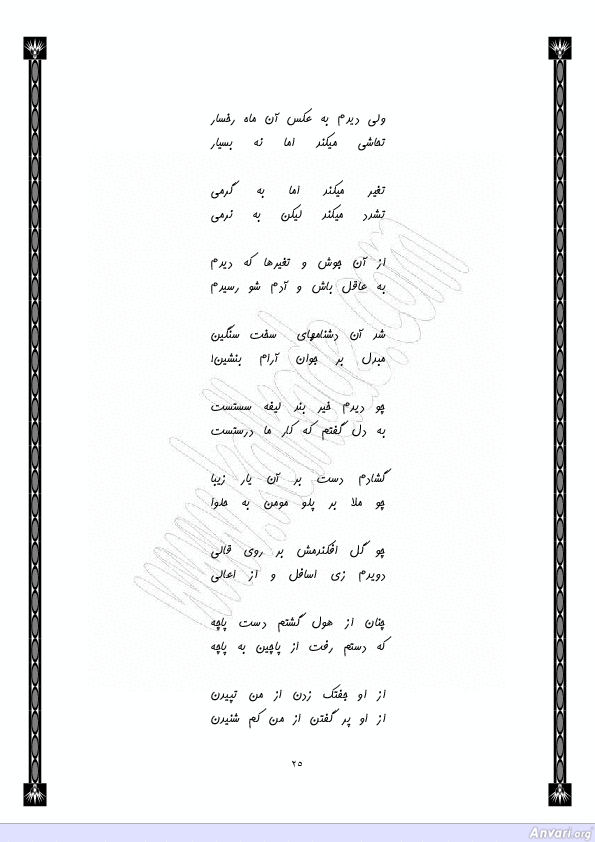 ولی دیدم به عکس آن ماه رخسار
تحاشی میکند اما نه بسیار
تغیر میکند اما به گرمی
تشدد میکند لیکن به نرمی
از آن جوش و تغیرها که دیدم
به عاقل باش و آدم شو رسیدم
شد آن دشنامهای سخت سنگین
مبدل بر جوان آرام بنشین!
چو دیدم خیر بند لیفه سستست
به دل گفتم که کار ما درستست
گشادم دست بر آن یار زیبا
چو ملا بر پلو مومن به حلوا
چو گل افکندمش بر روی قالی
دویدم زی اسافل و از اعالی
چنان از هول گشتم دست پاچه
که دستم رفت از پاچین به پاچه
از او جفتک زدن از من تپیدن
از او پر گفتن از من کم شنیدن
۲۵
Anvari.org